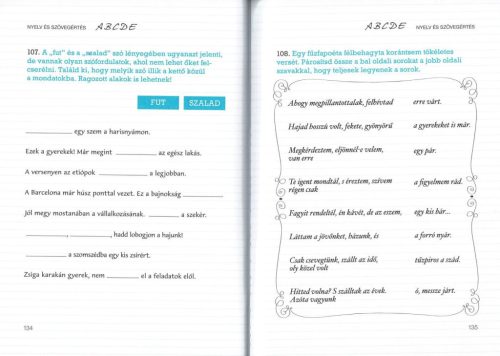 NYELV ÉS SZÖVEGÉRTÉS ABCDE
107. A „fut" és a „szalad" szó lényegében ugyanazt jelenti,
de vannak olyan szófordulatok, ahol nem lehet őket fel-
cserélni. Találd ki, hogy melyik szó illik a kettő közül
a mondatokba. Ragozott alakok is lehetnek!
FUT SZALAD
__________ egy szem a harisnyámon.
Ezek a gyerekek! Már megint __________ az egész lakás.
A versenyen az etiópok __________ a legjobban.
A Barcelona már húsz ponttal vezet. Ez a bajnokság __________
Jól megy mostanában a vállalkozásának. __________ a szekér.
__________, __________, hadd lobogjon a hajunk!
__________ a szomszédba egy kis zsírért.
Zsiga karakán gyerek, nem __________ el a feladatok elől.
134
ABCDE NYELV ÉS SZÖVEGÉRTÉS
108. Egy fűzfapoéta félbehagyta korántsem tökéletes
versét. Párosítsd össze a bal oldali sorokat a jobb oldali
szavakkal, hogy teljesek legyenek a sorok.
Ahogy megpillantottalak, felbívtad erre várt.
Hajad hosszú volt, fekete, gyönyörű a gyerekeket is már.
Megkérdeztem, eljönnél-e velem, egy pár.
van erre
Te igent mondtál, s éreztem, szívem a figyelmem rád.
régen csak
Fagyit rendeltél, én kávét, de az eszem, egy kis bár...
Láttam a jövőnket, házunk, is a forró nyár.
Csak csevegtünk, szállt az idő, tűzpiros a szád.
oly közel volt
Hitted volna? S szálltak az évek. ó, messze járt.
Azóta vagyunk
135